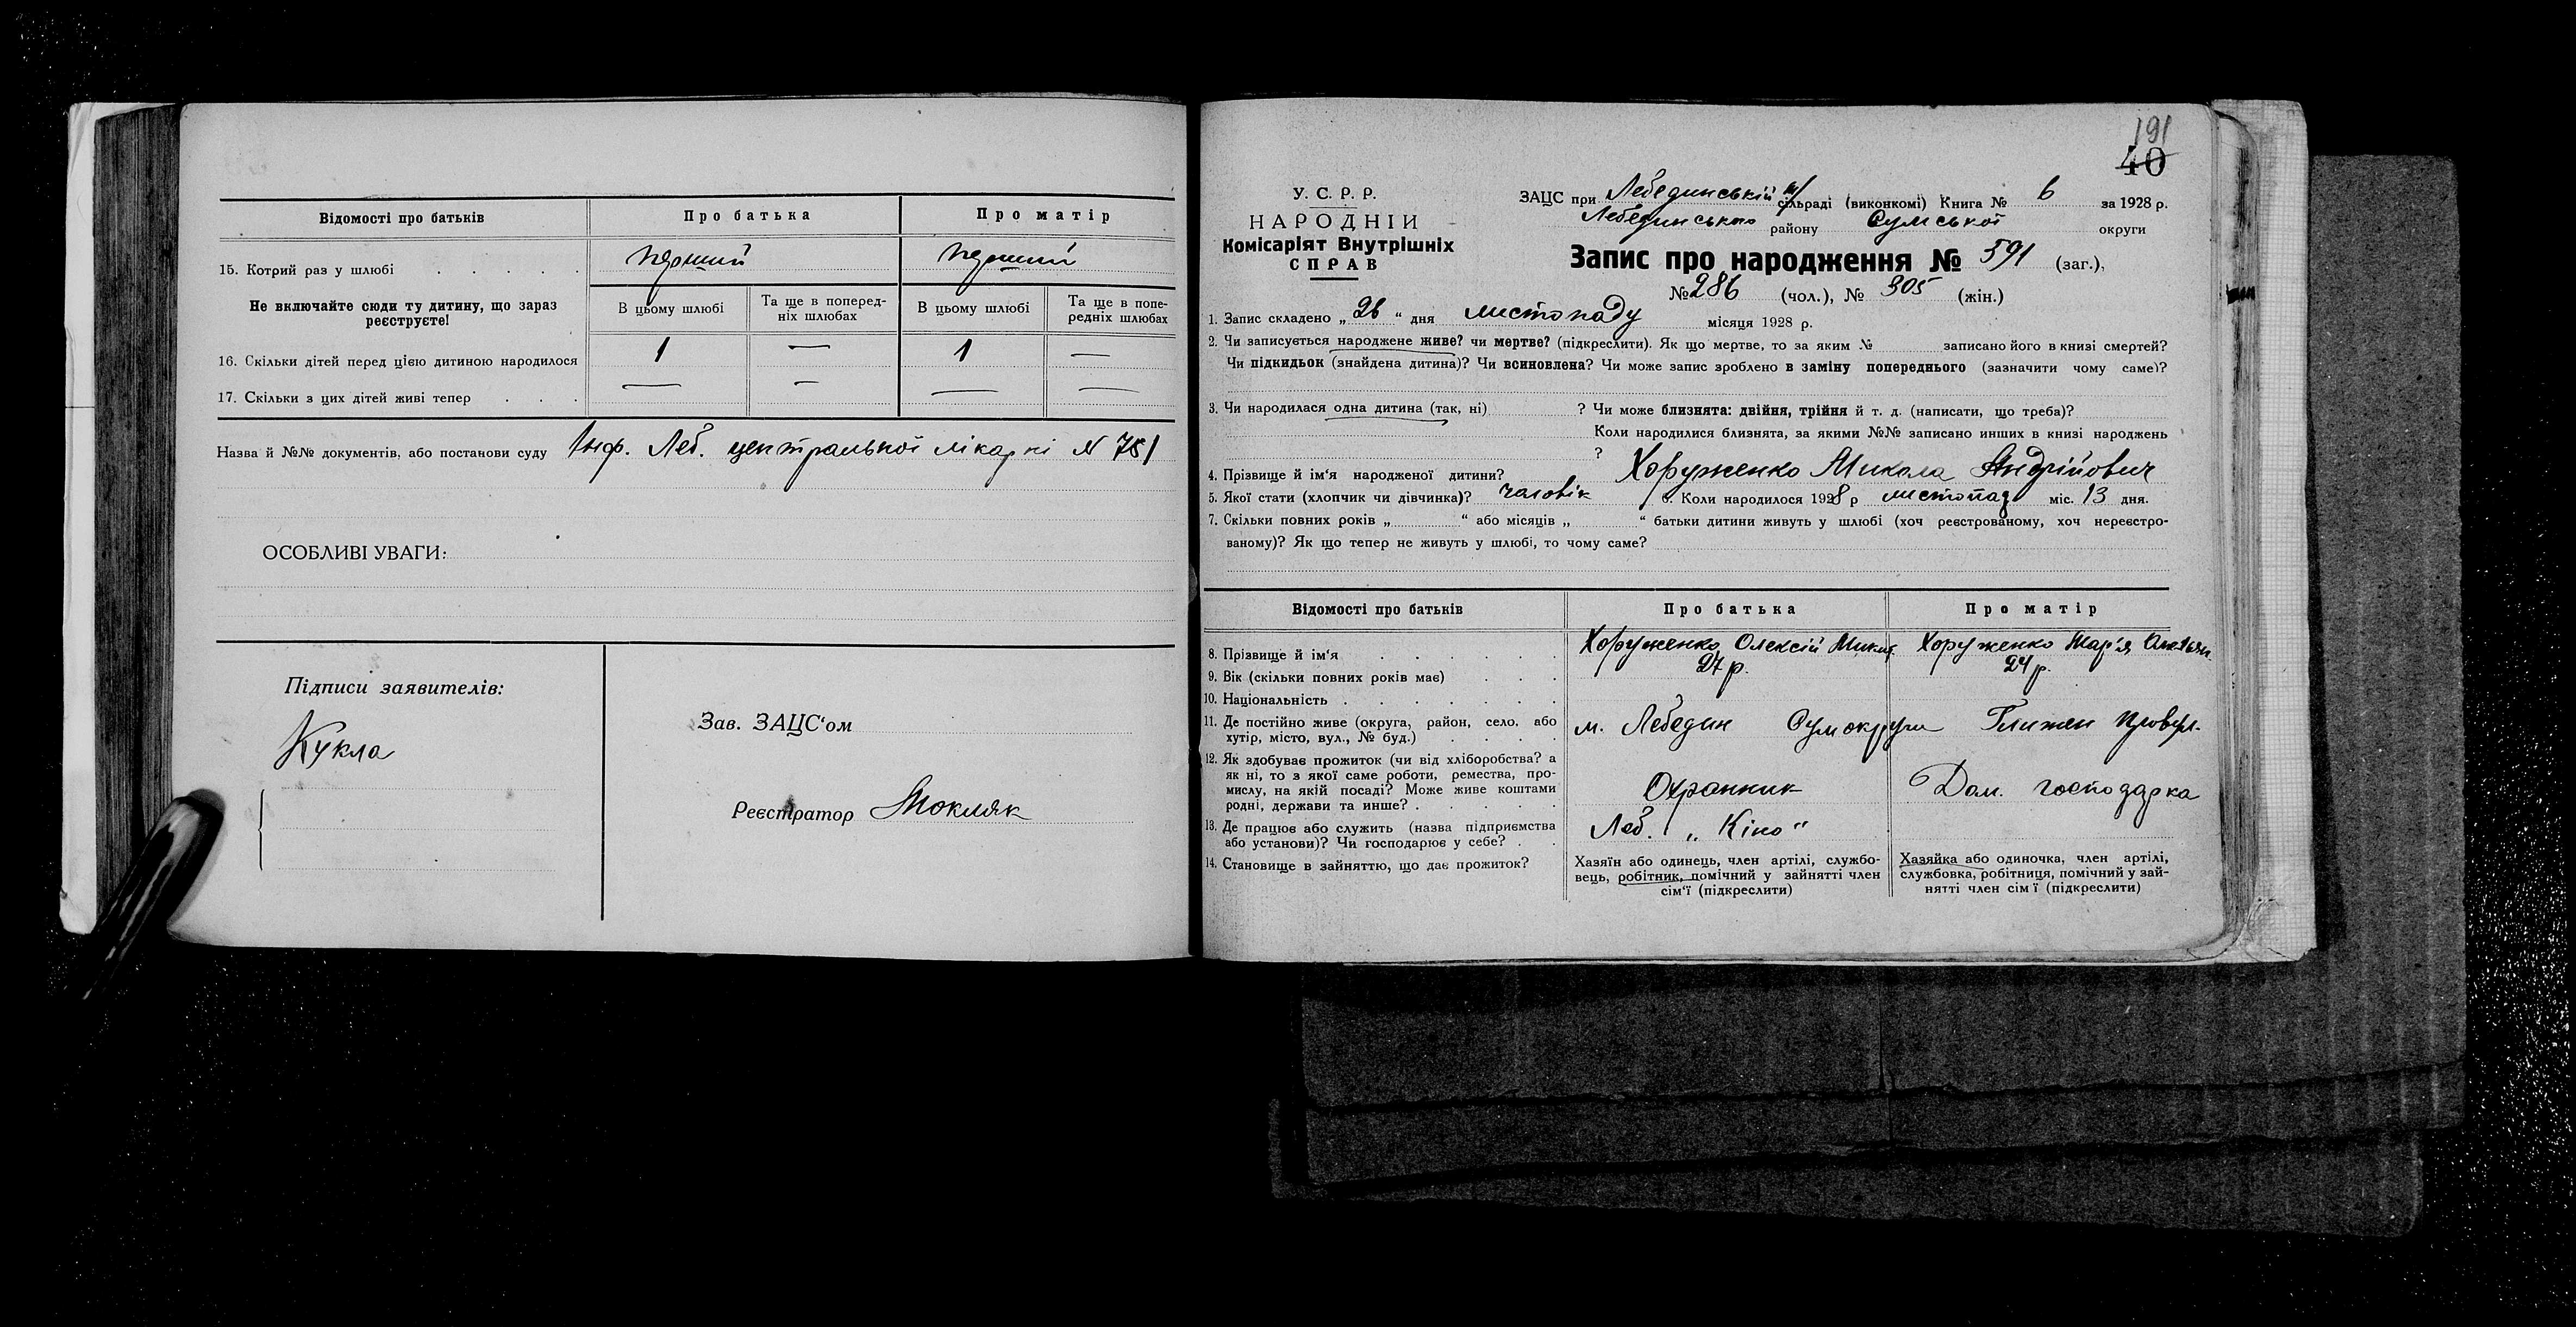 Відомості про батьків
Про батька
Про матір
15. Котрий раз у шлюбі
перший
перший
Не включайте сюди ту дитину, що зараз реєструєте!
В цьому шлюбі
Та ще в поперед-
ніх шлюбах
В цьому шлюбі
Та ще в попе-
редніх шлюбах
16. Скільки дітей перед цією дитиною народилося
1 — 1 —
17. Скільки з цих дітей живі тепер
— — — —
Назва й №№ документів, або постанови суду Інф. Леб. центральної лікарні N 781
ОСОБЛИВІ УВАГИ:
Підписи заявителів:
Кукла
Зав. ЗАЦС‘ом
Реєстратор Токмяк
191
40
У. С. Р. Р.
НАРОДНІЙ
Комісаріят Внутрішніх
СПРАВ
ЗАЦС при Лебединській м/сільраді (виконкомі) Книга № 6 за 1928 р.
Лебединського району Сумської округи
Запис про народження № 591 (заг.),
№ 286 (чол.), № 305 (жін.)
1. Запис складено „ 26 “ дня листопаду місяця 1928 р.
2. Чи записується народжене живе? чи мертве? (підкреслити). Як що мертве, то за яким № записано його в книзі смертей?
Чи підкидьок (знайдена дитина)? Чи всиновлена? Чи може запис зроблено в заміну попереднього (зазначити чому саме)?
3. Чи народилася одна дитина (так, ні) ? Чи може близнята: двійня, трійня й т. д. (написати, що треба)?
Коли народилися близнята, за якими №№ записано инших в книзі народжень
?
4. Прізвище й ім‘я народженої дитини? Хоруженко Микола Андрійович
5. Якої стати (хлопчик чи дівчинка)? чаловік 6. Коли народилося 1928 р листопад міс. 13 дня.
7. Скільки повних років „ “ або місяців „ “ батьки дитини живуть у шлюбі (хоч реєстрованому, хоч нереєстро-
ваному)? Як що тепер не живуть у шлюбі, то чому саме?
Відомості про батьків
Про батька
Про матір
8. Прізвище й ім‘я
Хоруженко Олексій Микит.
Хоруженко Мар'я
9. Вік (скільки повних років має)
27 р.
24 р.
10. Національність
11. Де постійно живе (округа, район, село, або
хутір, місто, вул., № буд.)
м. Лебедин Сумокруги
12. Як здобуває прожиток (чи від хліборобства? а
як ні, то з якої саме роботи, ремества, про-
мислу, на якій посаді? Може живе коштами
родні, держави та инше?
Охранник
Дом. господарка
13. Де працює або служить (назва підприємства
або установи)? Чи господарює у себе?
Леб. „Кіно“
14. Становище в зайняттю, що дає прожиток?
Хазяїн або одинець, член артілі, службо-
вець, робітник, помічний у зайнятті член
сім‘ї (підкреслити)
Хазяйка або одиночка, член артілі,
службовка, робітниця, помічний у зай-
нятті член сім ї (підкреслити)